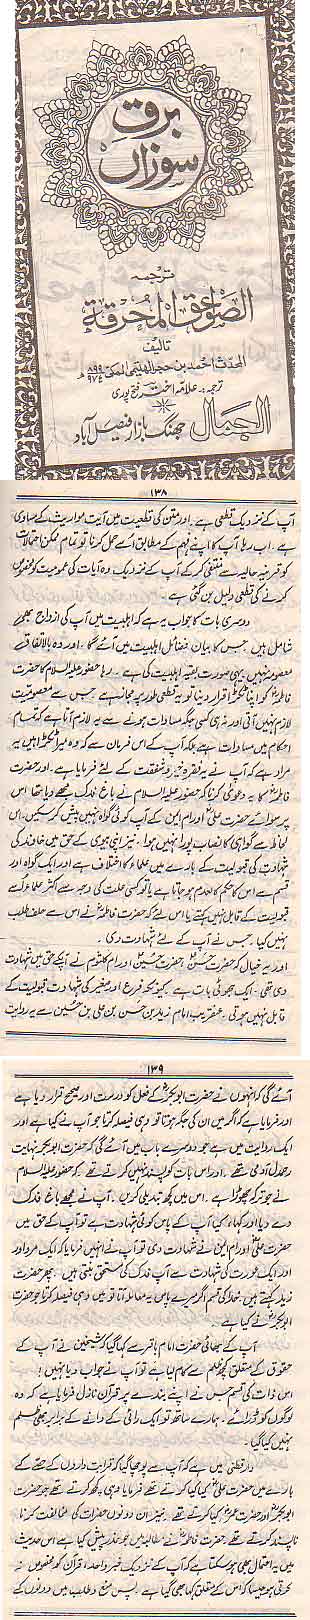 برق
سوزاں
ترجمہ
الصواعق المحرقة
تالیف
المحدث احمد بن حجر الہیتمی المکی ۸۹۹ ۹۷۴ھ
ترجمہ:۔ علامہ اختر فتح پوری
الجمال جھنگ بازار فیصل آباد
۱۳۸
آپ کے نزدیک قطعی ہے۔ اور متن کی قطعیت میں آیت مواریث کے مساوی
ہے۔ اب رہا آپ کا اپنے فہم کے مطابق اُسے حمل کرنا تو تمام ممکن احتمالات
کو قرینہ حالیہ سے منتفی کر کے آپ کے نزدیک وہ آیات کی عمومیت کو مخصوص
کرنے کی قطعی دلیل بن گئی ہے۔
دوسری بات کا جواب یہ ہے کہ اہلبیت میں آپ کی ازواج بھی
شامل ہیں جس کا بیان فضائل اہلبیت میں آئے گا۔ اور وہ بالاتفاق
معصوم نہیں یہی صورت بقیہ اہلبیت کی ہے۔ رہا حضور علیہ السلام کا حضرت
فاطمہ کو اپنا ٹکڑا قرار دینا تو یہ قطعی طور پر مجاز ہے جس سے معصومیت
لازم نہیں آتی اور نہ ہی کسی جگہ مساوات ہونے سے یہ لازم آتا ہے کہ تمام
احکام میں مساوات ہے بلکہ آپ کے اس فرمان سے کہ وہ میرا ٹکڑا ہیں یہ
مراد ہے کہ آپ نے یہ فقرہ خیر و شفقت کے لئے فرمایا ہے۔ اور حضرت
فاطمہ کا یہ دعویٰ کرنا کہ حضور علیہ السلام نے باغ فدک مجھے دیا تھا اس
پر سوائے حضرت علی اور ام ایمن کے آپ کوئی گواہ نہیں پیش کر سکیں۔ اس
لحاظ سے گواہی کا نصاب پورا نہیں ہوا۔ نیز اپنی بیوی کے حق میں خاوند کی
شہادت کی قبولیت کے بارے میں علماء کا اختلاف ہے اور ایک گواہ اور
قسم سے اس کا حکم کالعدم ہو جاتا ہے یا تو کسی علت کی وجہ سے اکثر علماء اُسے
قبولیت کے قابل نہیں کہتے یا اس لئے کہ حضرت فاطمہ نے اس سے حلف طلب
نہیں کیا۔ جس نے آپ کے لئے شہادت دی۔
اور یہ خیال کہ حضرت حسن، حضرت حسین اور ام کلثوم نے آپکے حق میں شہادت
دی تھی۔ ایک جھوٹی بات ہے۔ کیونکہ فرع اور صغیر کی شہادت قبولیت کے
قابل نہیں ہوتی۔ عنقریب امام زید بن حسن بن علی بن حسین سے یہ روایت
۱۳۹
آئے گی کہ انہوں نے حضرت ابوبکر کے فعل کو درست اور صحیح قرار دیا ہے
اور فرمایا ہے کہ اگر میں ان کی جگہ ہوتا تو وہی فیصلہ کرتا جو آپ نے کیا ہے اور
ایک روایت میں ہے جو دوسرے باب میں آئے گی کہ حضرت ابوبکر نہایت
رحمدل آدمی تھے۔ اور اس بات کو پسند نہیں کرتے تھے کہ حضور علیہ السلام
نے جو ترکہ چھوڑا ہے۔ اس میں کچھ تبدیلی کریں۔ آپ نے مجھے باغ فدک
دے دیا اور کہا، کیا آپ کے پاس کوئی شہادت ہے تو آپ کے حق میں
حضرت علی اور ام ایمن نے شہادت دی تو آپ نے انہیں فرمایا کہ ایک مرد اور
ایک عورت کی شہادت سے آپ فدک کی مستحق بنتی ہیں۔ پھر حضرت
زید کہتے ہیں۔ خدا کی قسم اگر میرے پاس یہ معاملہ آتا تو میں وہی فیصلہ کرتا جو حضرت
ابوبکر نے کیا ہے۔
آپ کے بھائی حضرت امام باقر سے کہا گیا کہ شیخین نے آپ کے
حقوق کے متعلق کچھ ظلم سے کام لیا ہے تو آپ نے جواب دیا نہیں!
اس ذات کی قسم جس نے اپنے بندے پر قرآن نازل فرمایا ہے کہ وہ
لوگوں کو ڈرائے۔ ہمارے ساتھ تو ایک رائی کے دانے کے برابر بھی ظلم
نہیں کیا گیا۔
دارقطنی میں ہے کہ آپ سے پوچھا گیا کہ قرابت داروں کے حصے کے
بارے میں حضرت علی کیا کیا کرتے تھے فرمایا وہی کچھ کرتے تھے جو حضرت
ابوبکر اور حضرت عمر کیا کرتے تھے۔ نیز ان دونوں حضرات کی مخالفت کرنا
ناپسند کرتے تھے۔ حضرت فاطمہ نے مطالبہ میں جو عذر پیش کیا ہے اس حدیث
میں یہ احتمال بھی ہو سکتا ہے کہ آپ کے نزدیک خبر واحد، قرآن کو مخصوص نہ
کرتی ہو جیسا کہ اس کے متعلق کہا بھی گیا ہے۔ پس منع و طلب میں دونوں کے